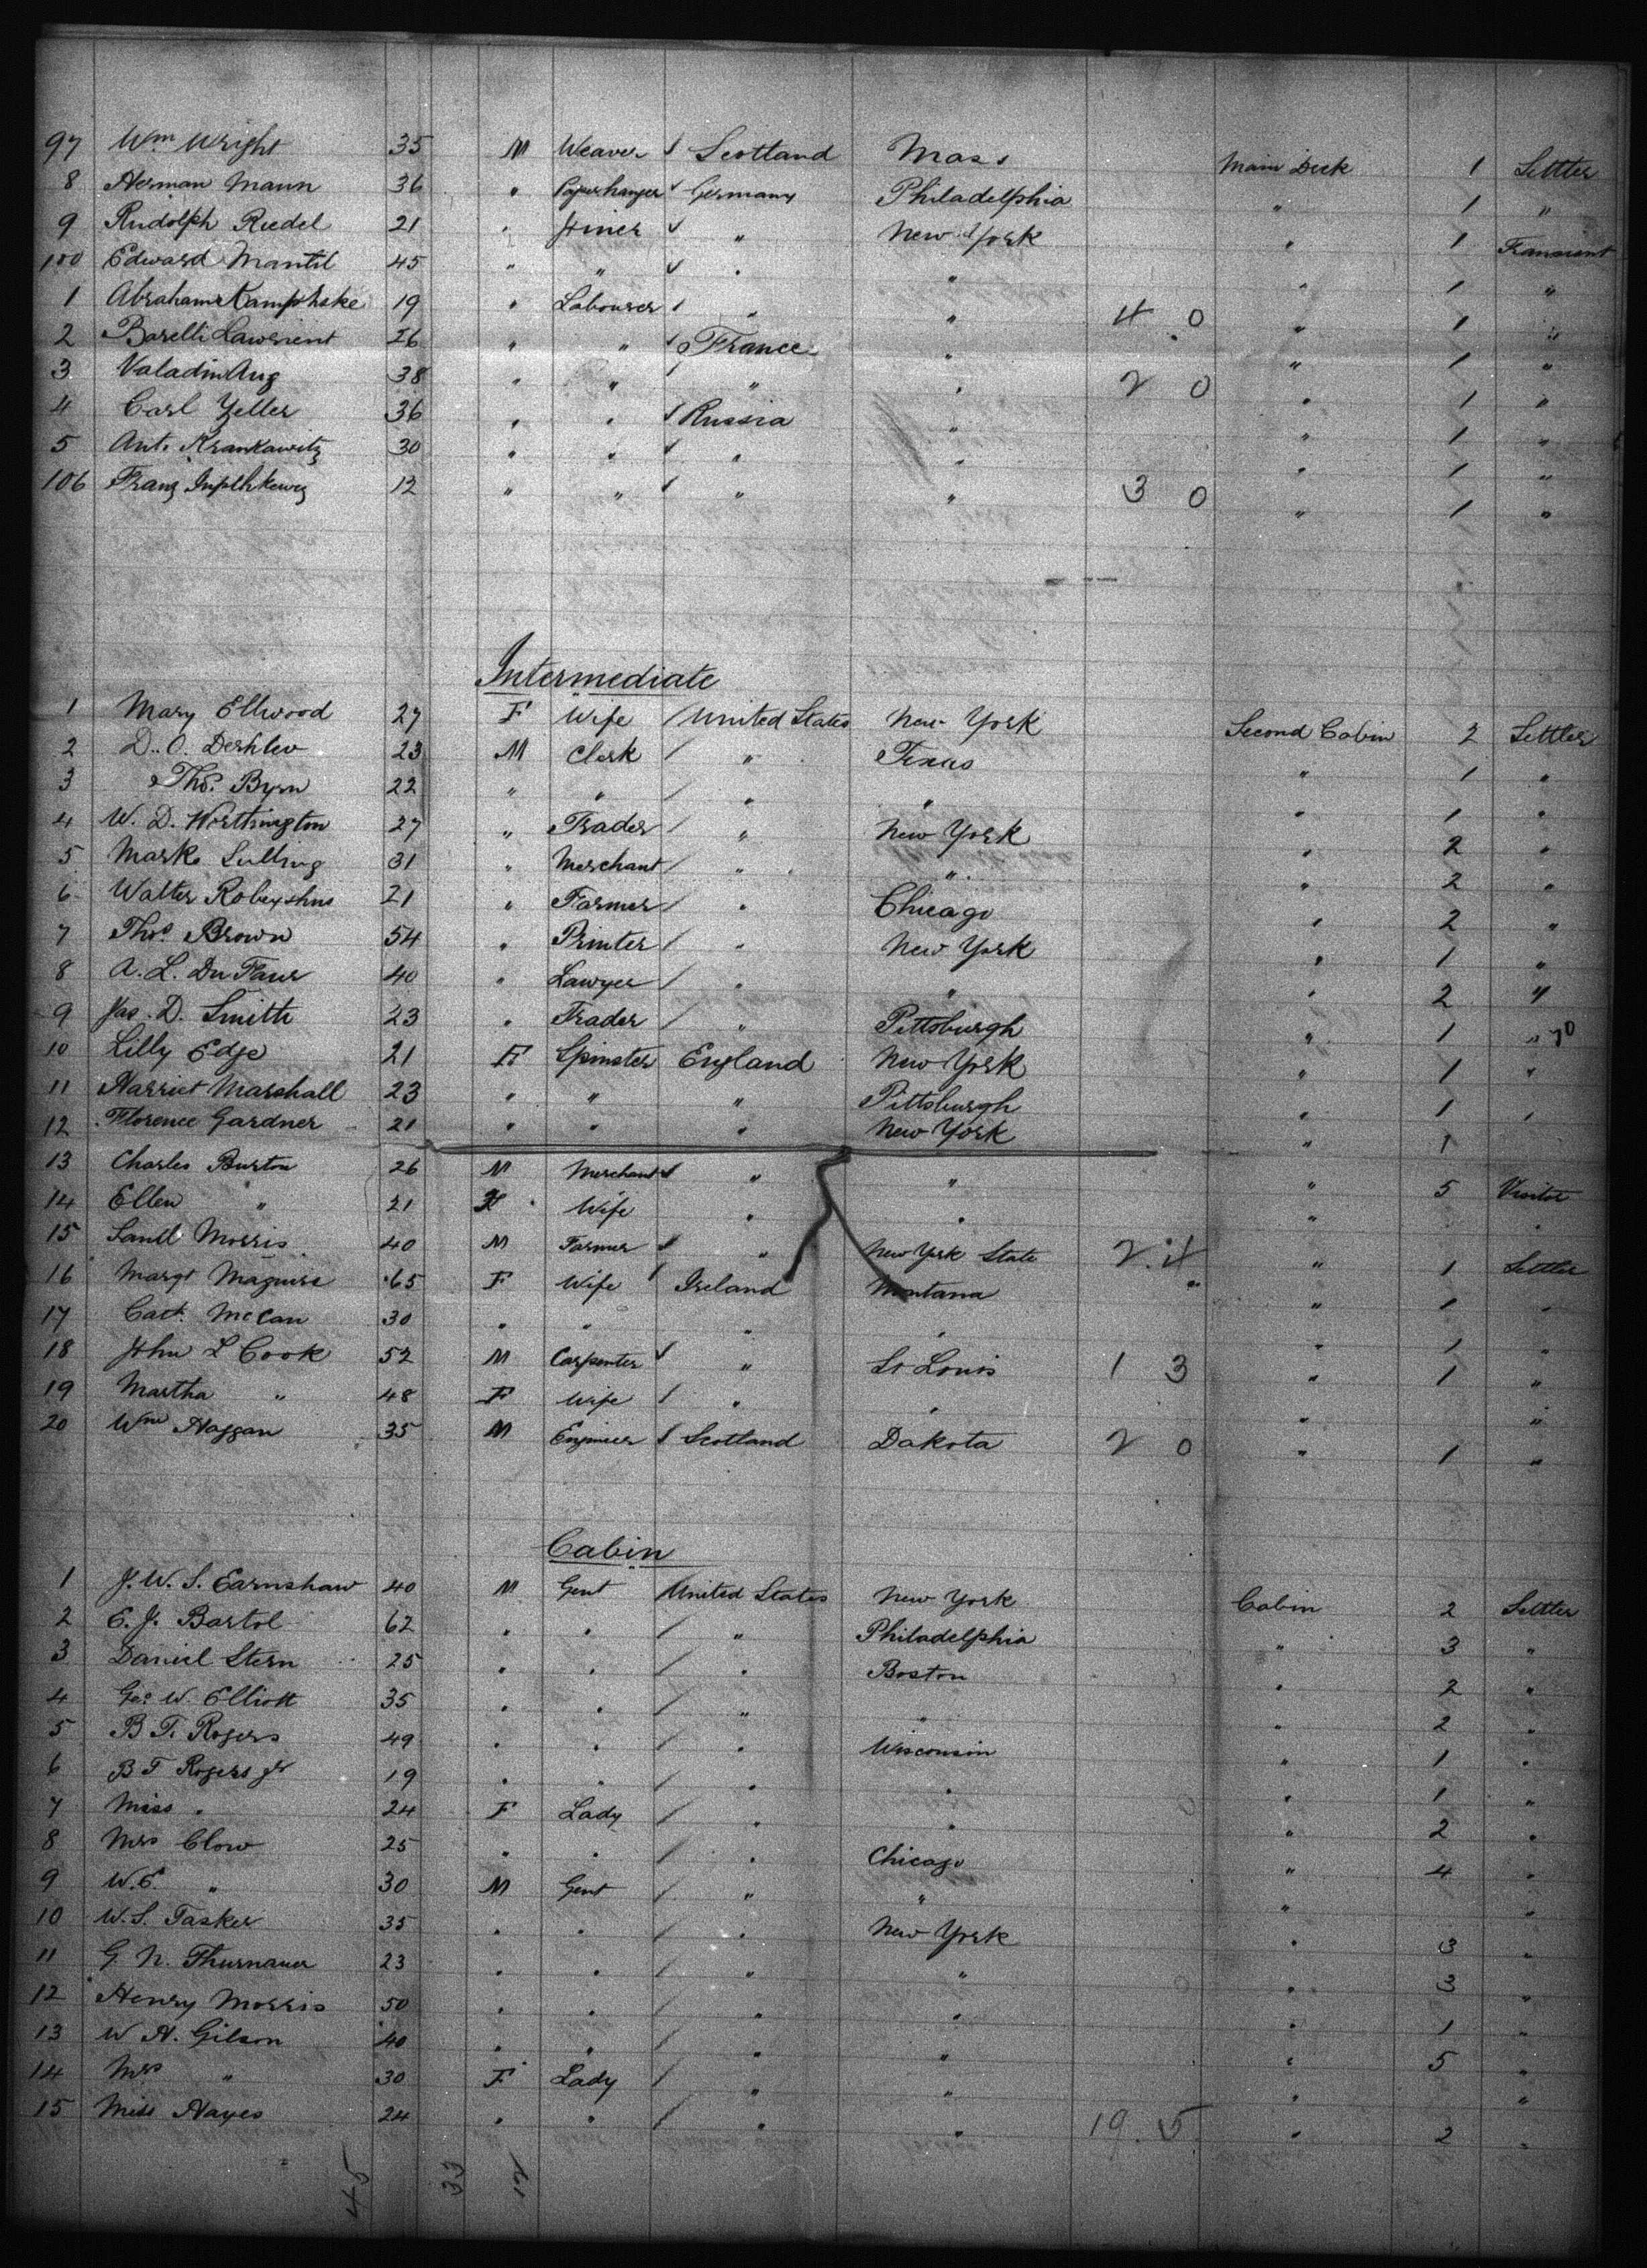 97 Wm Wright 35 M Weaver Scotland Mass Main Deck 1 Settler
8 Herman Mann 36 " Paperhanger Germany Philadelphia " 1 "
9 Rudolph Riedel 21 " Joiner " New York " 1 Transient
100 Edward Mantil 45 " " " " " 1 "
1 Abraham 19 " Labourer " " 4 0 " 1 "
2 Barelli Lawrient 26 " " France " " 1 "
3 Valadin Aug 38 " " " " 2 0 " 1 "
4 Carl Zeller 36 " " Russia " " 1 "
5 Ant. Krankawitz 30 " " " " " 1 "
106 Franz 12 " " " " 3 0 " 1 "
Intermediate
1 Mary Ellwood 27 F Wife United States New York Second Cabin 2 Settler
2 D. O. Deshler 23 M Clerk " Texas " 1 "
3 Thos. Byrn 22 " " " " " 1 "
4 W. D. Worthington 27 " Trader " New York " 2 "
5 Mark 31 " Merchant " " " 2 "
6 Walter 21 " Farmer " Chicago " 2 "
7 Thos. Brown 54 " Printer " New York " 1 "
8 A. L. Du Faur 40 " Lawyer " " " 2 "
9 Jas. D. Smith 23 " Trader " Pittsburgh " 1 "
10 Lilly Edge 21 F Spinster England New York " 1 "
11 Harriet Marshall 23 " " " Pittsburgh " 1 "
12 Florence Gardner 21 " " " New York " 1
13 Charles Burton 26 M Merchant " " " 5 Visitor
14 Ellen " 21 F Wife " " " "
15 Saml Morris 40 M Farmer " New York State 2 4 " 1 Settler
16 Margt Maguire 65 F Wife Ireland Montana " 1 "
17 Cath. McCan 30 " " " " " 1 "
18 John L Cook 52 M Carpenter " St Louis 1 3 " 1 "
19 Martha " 48 F Wife " " " "
20 Wm Haggan 35 M Engineer Scotland Dakota 2 0 " 1 "
Cabin
1 J. W. S. Earnshaw 40 M Gent United States New York Cabin 2 Settler
2 E. J. Bartol 62 " " " Philadelphia " 3 "
3 Daniel Stern 25 " " " Boston " 2 "
4 Geo. W. Elliott 35 " " " " " 2 "
5 B. T. Rogers 49 " " " Wisconsin " 1 "
6 B T Rogers Jr 19 " " " " " 1 "
7 Miss " 24 F Lady " " " 2 "
8 Mrs Clow 25 " " " Chicago " 4 "
9 W. E. " 30 M Gent " " " "
10 W. S. Tasker 35 " " " New York " 3 "
11 G. N. Thurnauer 23 " " " " " 3 "
12 Henry Morris 50 " " " " " 1 "
13 W H. Gilson 40 " " " " " 5 "
14 Mrs " 30 F Lady " " " "
15 Miss Hayes 24 " " " " 19. 5 " 2 "
45 33 12